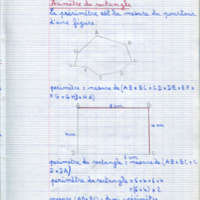 Périmètre du rectangle
Le périmètre est la mesure du pourtour
d'une figure.
A
B
périmètre = mesure de [AB + BC + CD + DE + EF +
FG + GH + HA]
6 cm
4 cm
4 cm
6 cm
périmètre du rectangle = mesure de [AB + BC + C
D + DA]
périmètre du rectangle = 6 + 4 + 6 + 4
= (6+4) × 2